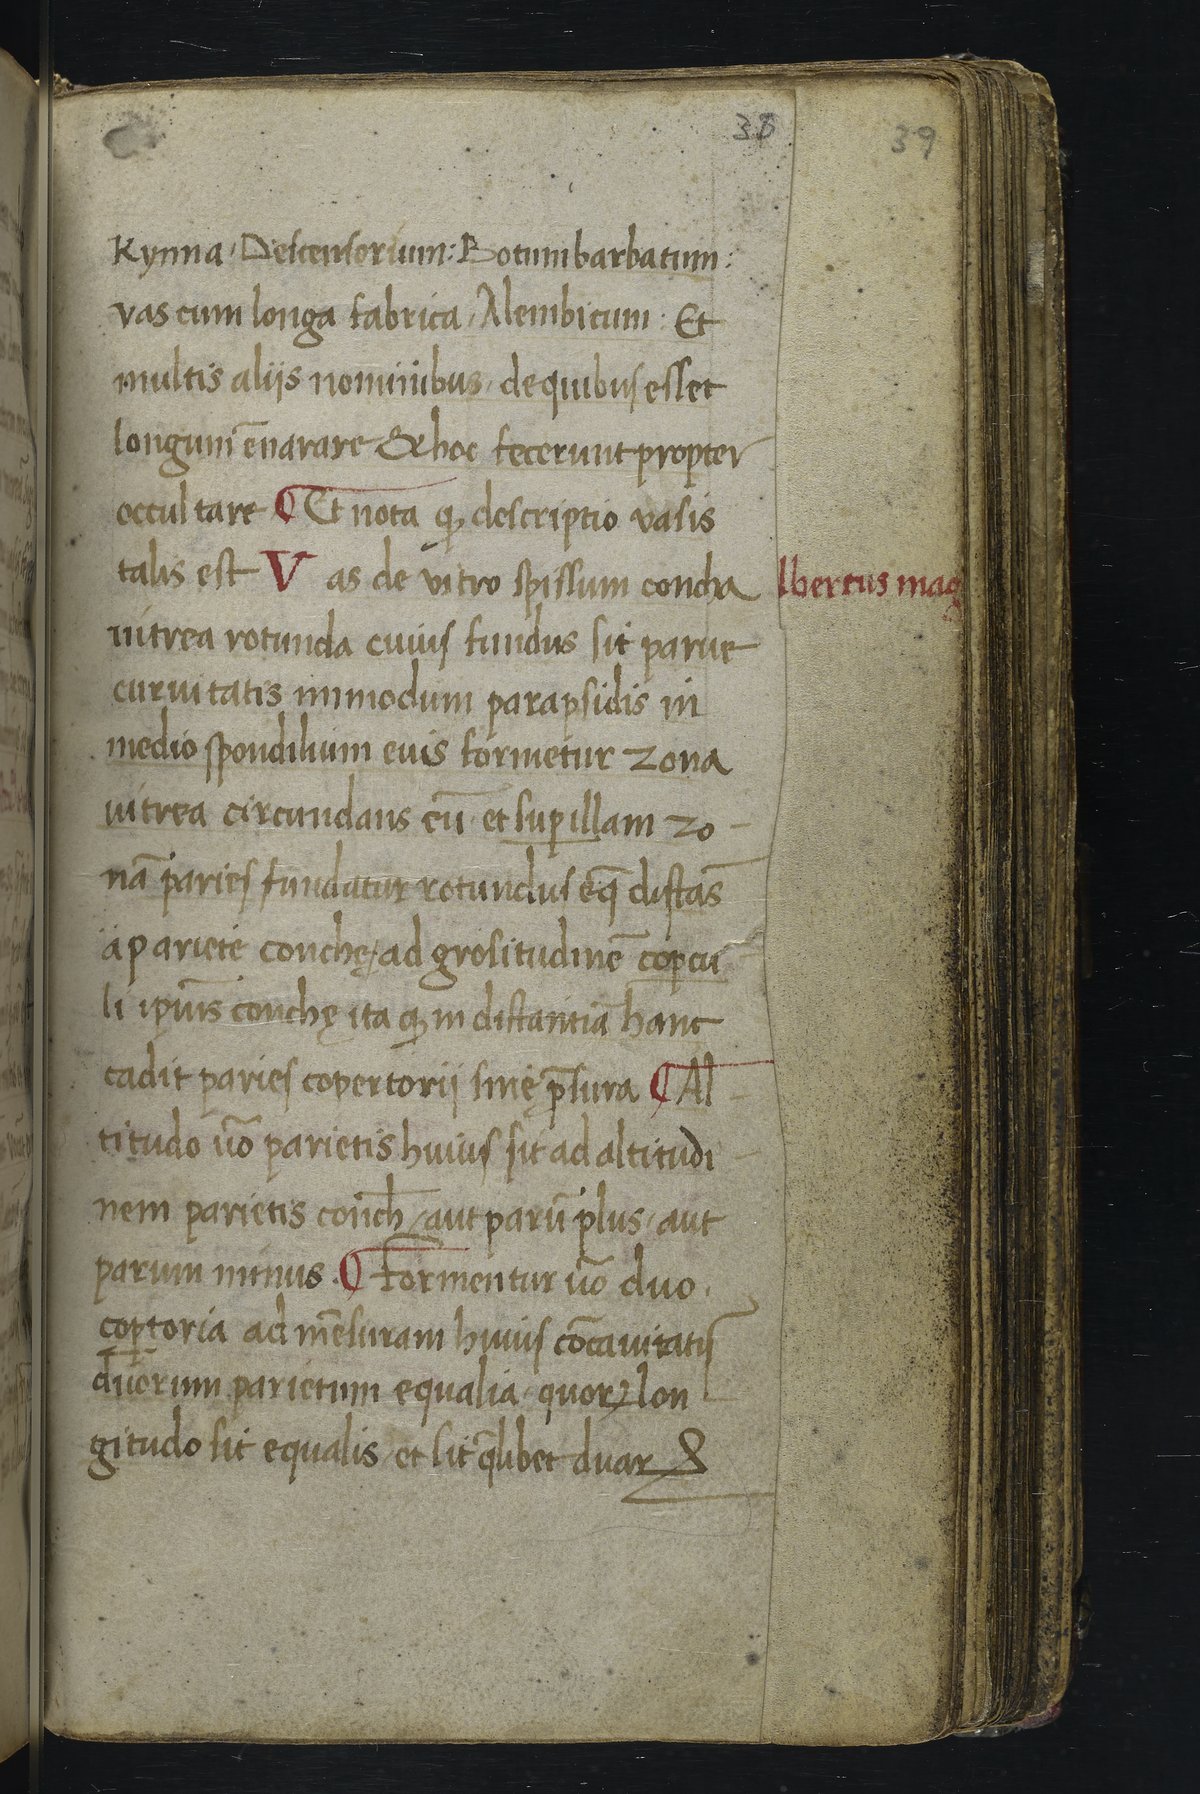 38
39
Kynna · Descensorium : Botumbarbatum :
vas cum longa fabrica / Alembicum : Et
multis aliis nominibus / de quibus esset
longum ēnarare & hoc fecerunt propter
occultare ¶ Et nota ꝙ descriptio vasis
talis est Vas de vitro spissum concha
lbertus mag
uitrea rotunda cuius fundus sit parue
curuitatis inmodum parapsidis in
medio spondilium euis formetur zona
uitrea circundans eū et sup illam zo
nā paries fundatur rotundus eq̄ distās
a pariete conchę / ad grositudinē copcu
li ipīus conchę ita ꝙ in distantiā hanc
cadit paries copertorii sine p̄sura ¶ Al
titudo uo̅ parietis huius sit ad altitudi
nem parietis conch̄ / aut parū plus / aut
parum minus . ¶ formentur uo̅ duo
coꝑtoria ad mēsuram huius cōcauitatis
duorum parietum equalia / quoꝝ lon
gitudo sit equalis / et sit q̄libet duar&